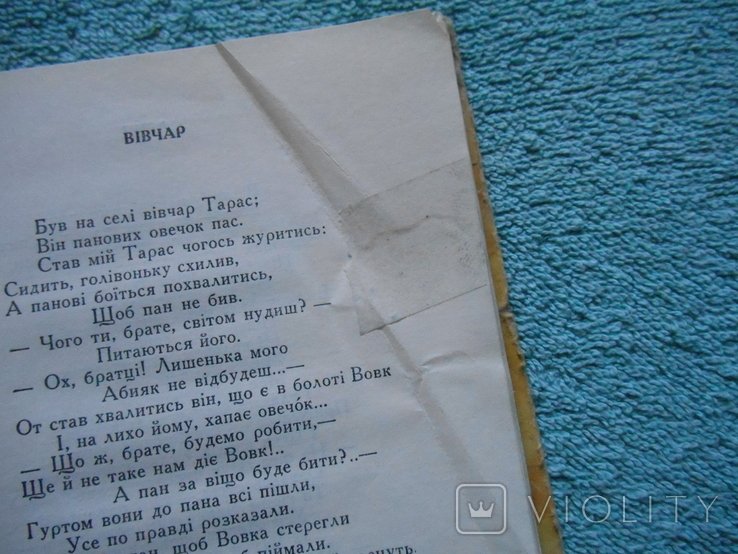 ВІВЧАР
Був на селі вівчар Тарас;
Він панових овечок пас.
Став мій Тарас чогось журитись:
Сидить, голівоньку схилив,
А панові боїться похвалитись,
Щоб пан не бив.
— Чого ти, брате, світом нудиш? —
Питаються його.
— Ох, братці! Лишенька мого
Абияк не відбудеш...—
От став хвалитись він, що є в болоті Вовк
І, на лихо йому, хапає овечо́к...
— Що ж, брате, будемо робити,—
Ще й не таке нам діє Вовк!..
А пан за віщо буде бити?..—
Гуртом вони до пана всі пішли,
Усе по правді розказали.
щоб Вовка стерегли
піймали.
VIOLITY